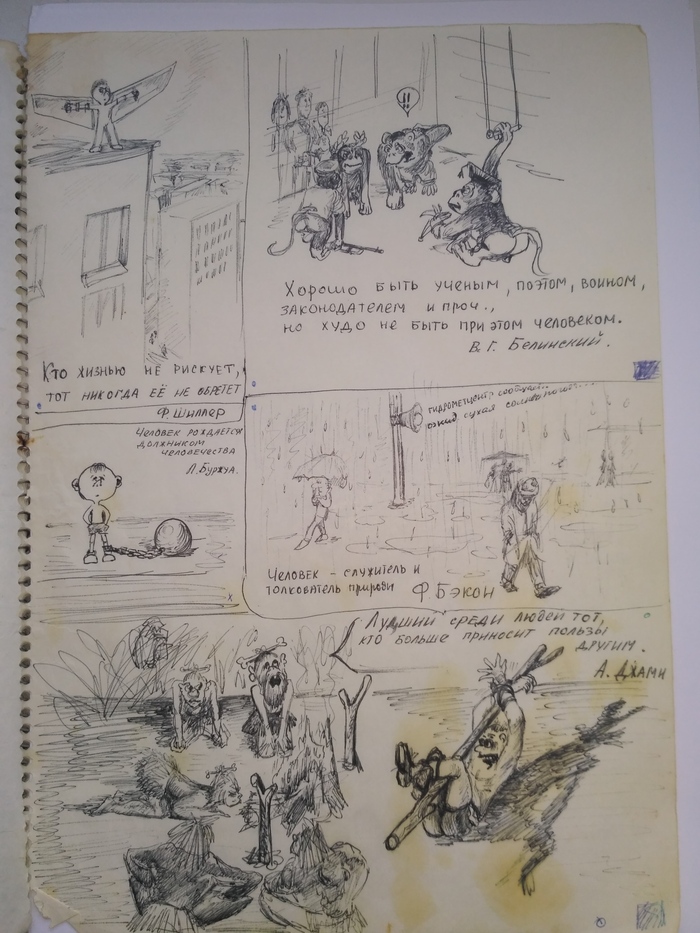 !!
Хорошо быть ученым, поэтом, воином,
законодателем и проч.,
но худо не быть при этом человеком.
В.Г. Белинский.
Кто жизнью не рискует,
тот никогда её не обретет
Ф. Шиллер
Человек рождается
должником
человечества
Л. Буржуа.
Гидрометцентр сообщает...
сухая солнеч
Человек - служитель и
толкователь природы
Ф. Бэкон
Лучший среди людей тот,
кто больше приносит пользы
другим.
А. Джами